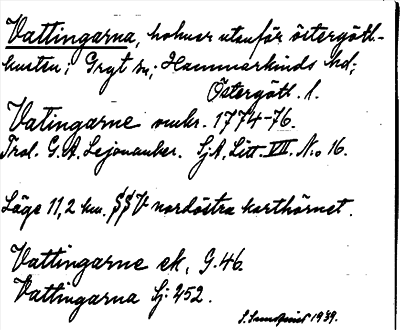 Vattingarna, holmar utanför östergötl.-
kusten; Gryt sn; Hammarkinds hd;
Östergötl. l.
Vatingarne omkr. 1774-76.
Trol. G. A. Lejonanker. SjA. Litt. VII. No 16.
Läge 11,2 km. SSV nordöstra karthörnet.
Vattingarne ek. G.46.
Vattingarna Sj: 252.
1939.